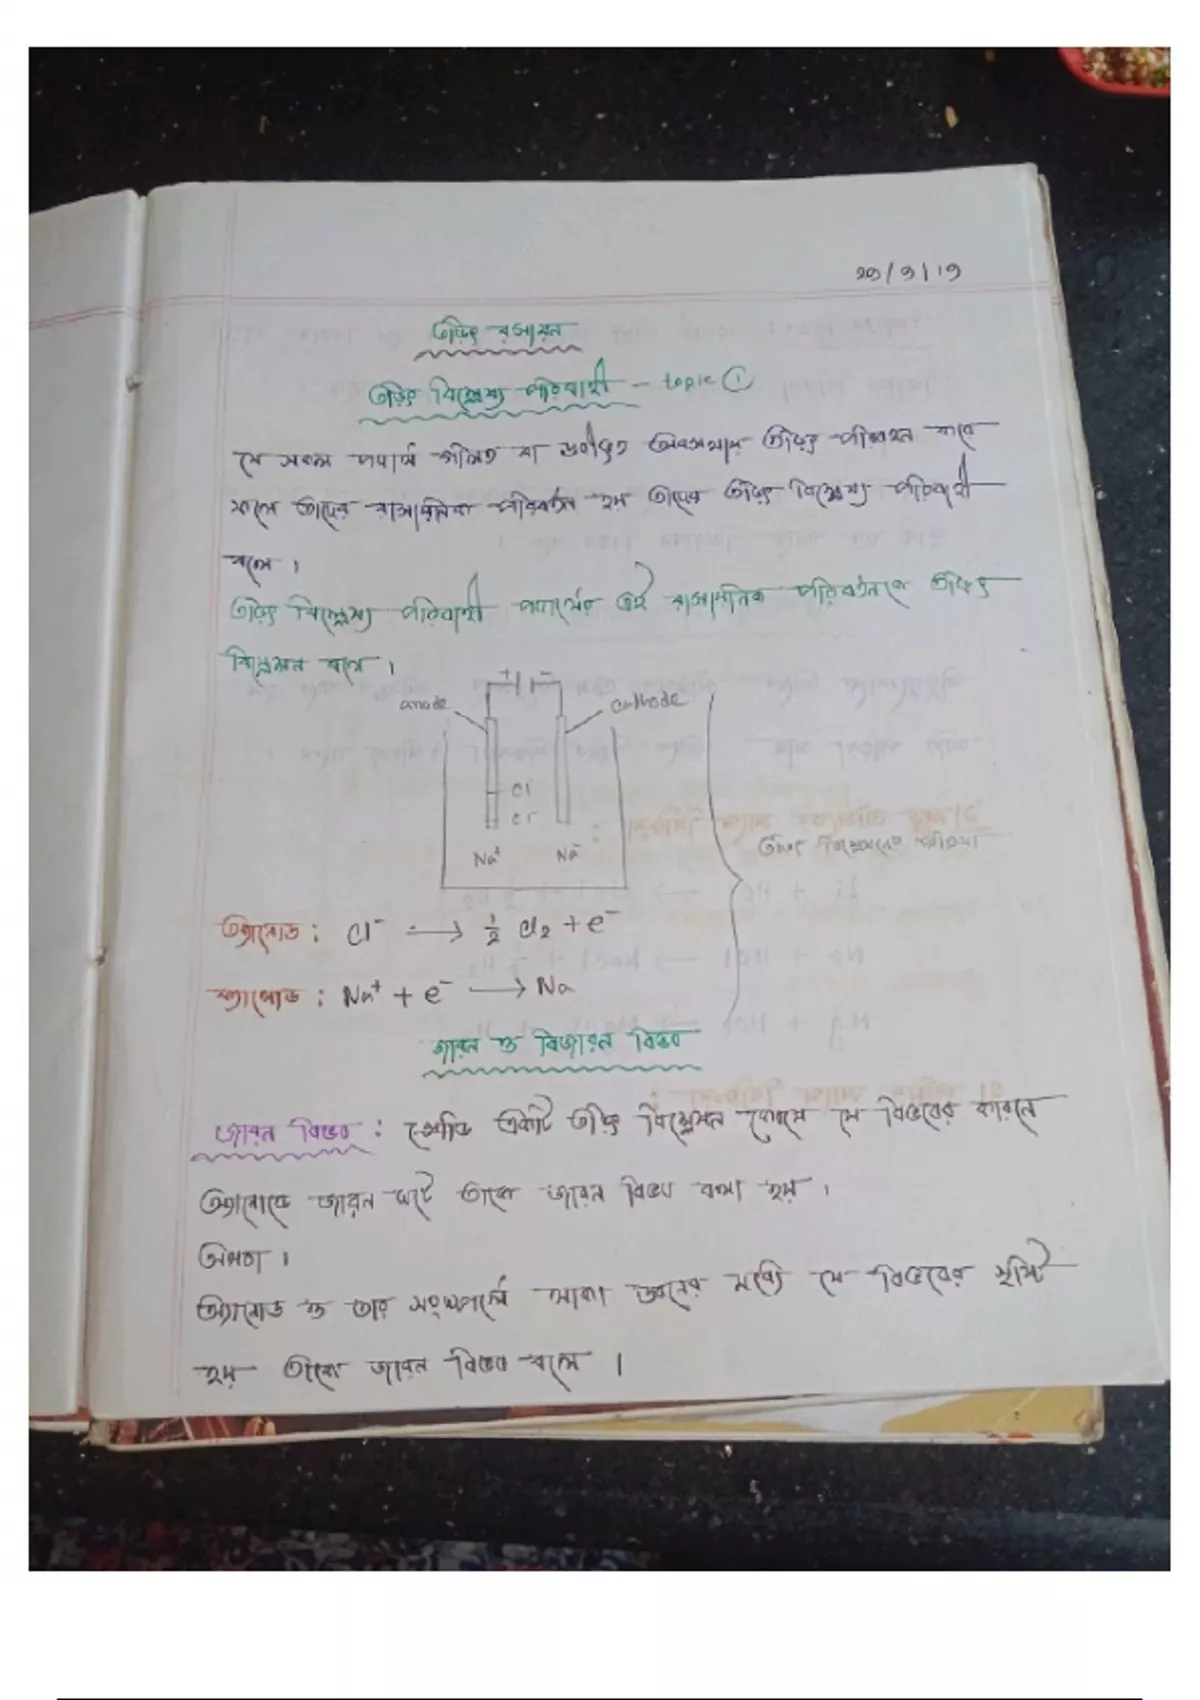 ২৩/৩/১৭
তড়িৎ রসায়ন
তড়িৎ বিশ্লেষ্য পরিবাহী - topic ①
যে সকল পদার্থ গলিত বা দ্রবীভূত অবস্থায় তড়িৎ পরিবহন করে
ফলে তাদের রাসায়নিক পরিবর্তন হয় তাদের তড়িৎ বিশ্লেষ্য পরিবাহী
বলে ।
তড়িৎ বিশ্লেষ্য পরিবাহী পদার্থের এই রাসায়নিক পরিবর্তনকে তড়িৎ
বিশ্লেষন বলে ।
+ -
anode cathode
Cl
Cl-
Na+ Na-
তড়িৎ বিশ্লেষনের প্রক্রিয়া
অ্যানোড : Cl⁻ → ½ Cl₂ + e⁻
ক্যাথোড : Na⁺ + e⁻ → Na
জারন ও বিজারন বিভব
জারন বিভব : একটি তড়িৎ বিশ্লেষন কোষে যে বিভবের কারনে
অ্যানোডে জারন ঘটে তাকে জারন বিভব বলা হয় ।
অথবা ।
অ্যানোড ও তার সংস্পর্শে থাকা দ্রবনের মধ্যে যে বিভবের সৃষ্টি
হয় তাকে জারন বিভব বলে ।